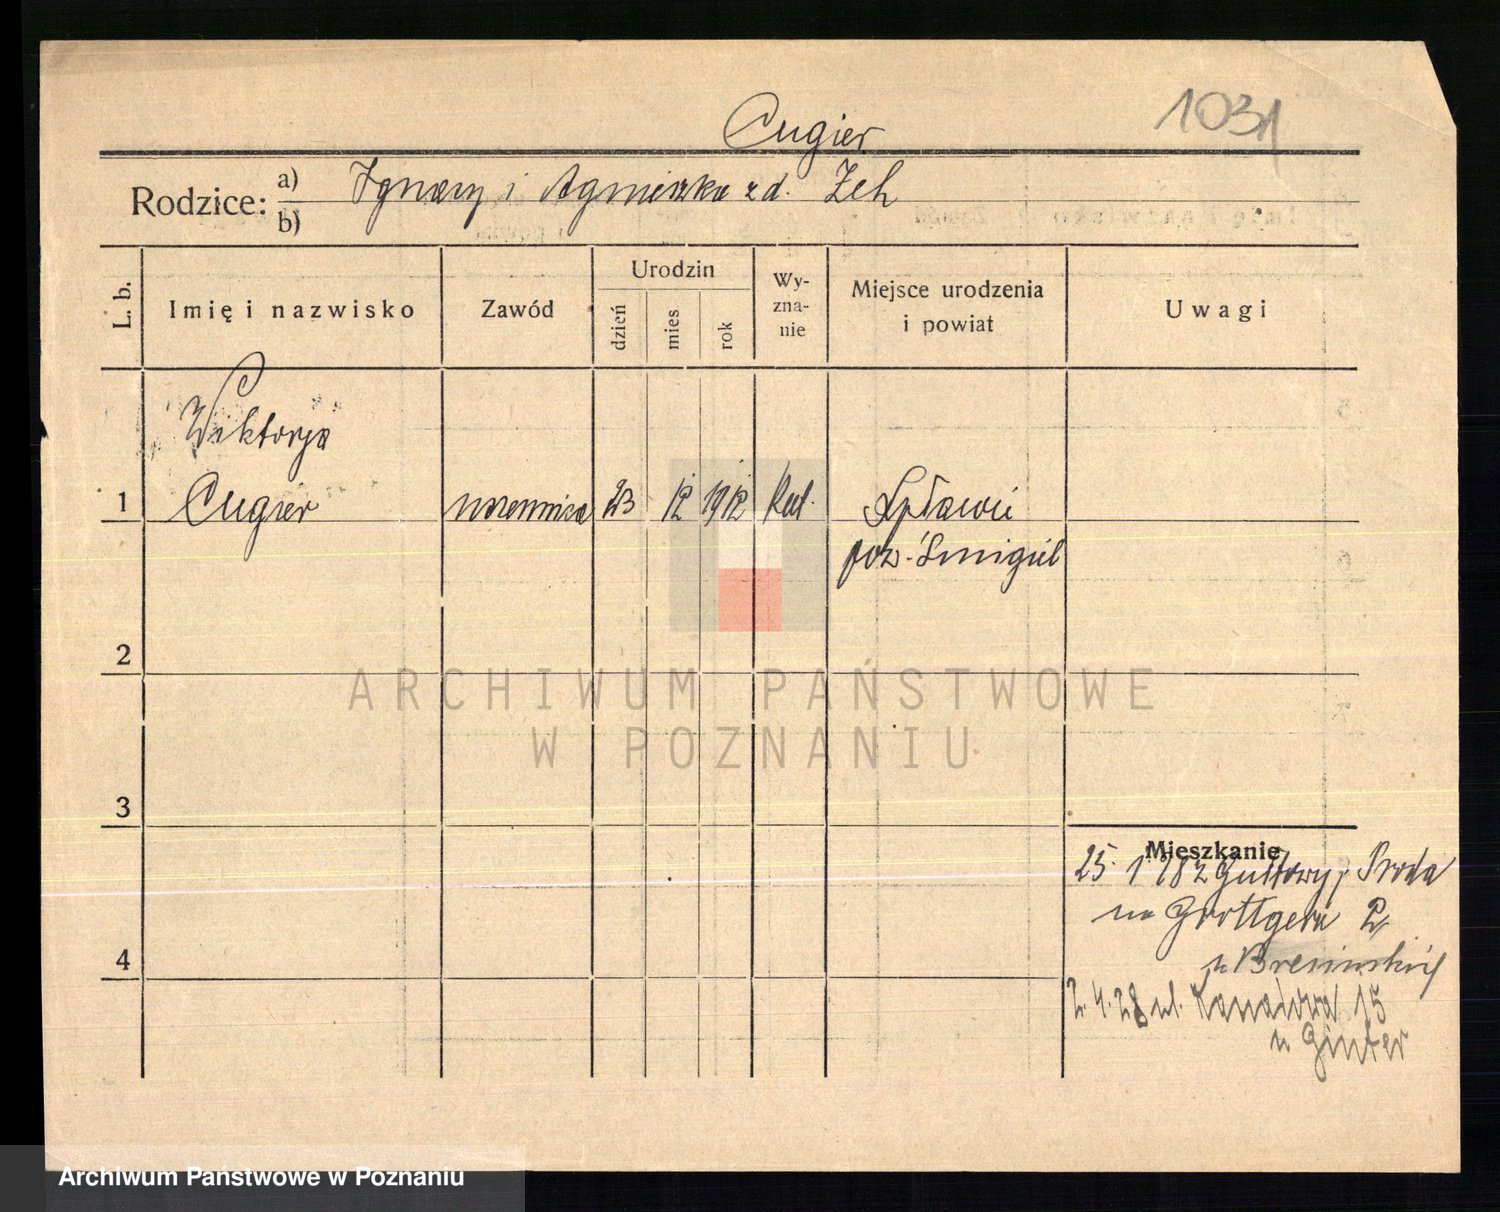 Cugier
1031
Rodzice: a) Ignacy i Agnieszka z d. Zeh
b)
L. b.
Imię i nazwisko
Zawód
Urodzin
dzień
mies
rok
Wy-
zna-
nie
Miejsce urodzenia
i powiat
Uwagi
Wiktorja
1 Cugier uczennica 23 12 1912 kat. Spławie
pow. Śmigiel
2
ARCHIWUM PAŃSTWOWE
W POZNANIU
3
Mieszkanie
25. 1 28 z Gułtowy, Środa
na Grottgera
4
u Bresińskiej
2. 4. 28 ul. Kanałowa 15
u Ginter
Archiwum Państwowe w Poznaniu